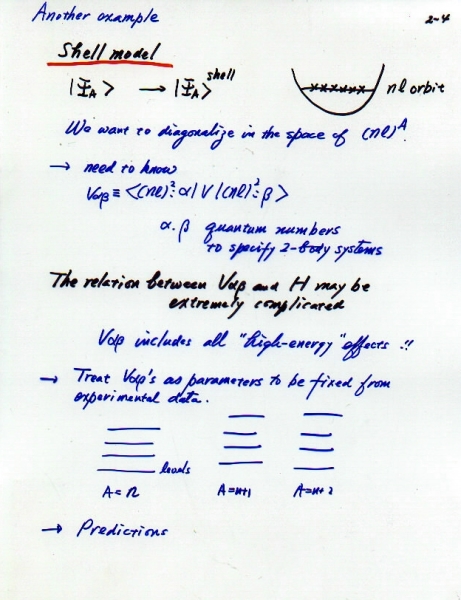 Another example
2-4
Shell model
|Φ_A> → |Φ_A>^shell
nl orbit
We want to diagonalize in the space of (nl)^A.
→ need to know
Vαβ ≡ <(nl)²:α| V |(nl)²:β>
α.β quantum numbers
to specify 2-body systems
The relation between Vαβ and H may be
extremely complicated
Vαβ includes all "high-energy" effects !!
→ Treat Vαβ's as parameters to be fixed from
experimental data.
levels
A=n A=n+1 A=n+2
→ Predictions